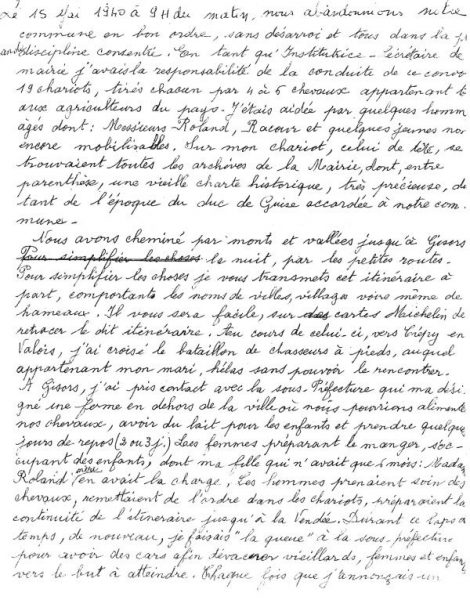 Le 15 Mai 1940 à 9H du matin, nous abandonnions notre
commune en bon ordre, sans desarroi et tous dans la
discipline consentie. En tant qu'Institutrice - Secrétaire de
mairie j'avais la responsabilité de la conduite de ce convo
19 chariots, tirés chacun par 4 à 5 chevaux appartenant t
aux agriculteurs du pays. J'étais aidée par quelques homm
âgés dont: Messieurs Roland, Racour et quelques jeunes no
encore mobilisables. Sur mon chariot, celui de tête, se
trouvaient toutes les archives de la Mairie, dont, entre
parenthèse, une vieille charte historique, très précieuse, da
tant de l'époque du duc de Guise accordée à notre com-
mune -
Nous avons cheminé par monts et vallées jusqu'à Gisors
Pour simplifier les choses la nuit, par les petites routes.
Pour simplifier les choses je vous transmets cet itinéraire à
part, comportants les noms de villes, villages voire même de
hameaux. Il vous sera facile, sur des cartes Michelin de
retracer le dit itinéraire. Au cours de celui-ci, vers Crépy en
Valois, j'ai croisé le bataillon de chasseurs à pieds, auquel
appartenant mon mari, hélas sans pouvoir le rencontrer.
A Gisors, j'ai pris contact avec la sous-Préfecture qui m'a dési
gné une ferme en dehors de la ville où nous pourrions aliment
nos chevaux, avoir du lait pour les enfants et prendre quelque
jours de repos (2 ou 3 j.) Les femmes préparant le manger, s'oc-
cupant des enfants, dont ma fille qui n'avait que 4 mois: Mada
Roland en avait la charge, Les hommes prenaient soin des
chevaux, remettaient de l'ordre dans les chariots, préparaient la
continuité de l'itinéraire jusqu'à la Vendée. Durant ce laps
temps, de nouveau, je faisais "la queue" à la sous-préfecture
pour avoir des cars afin d'évacuer vieillards, femmes et enfan
vers le but à atteindre. Chaque fois que j'annonçais un